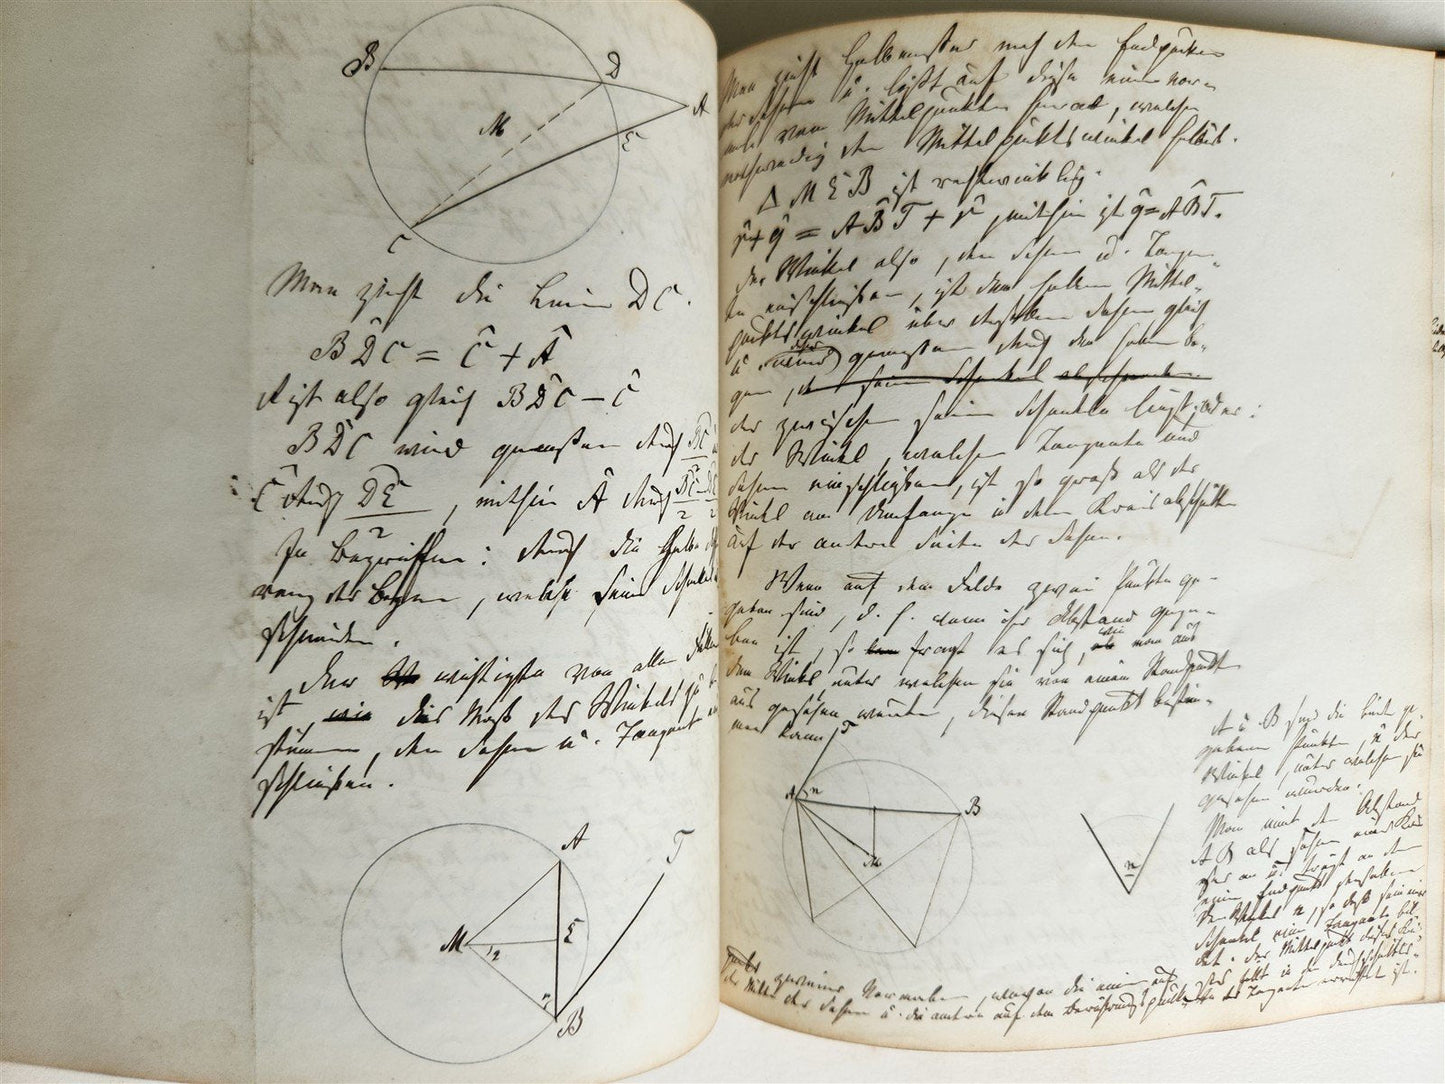 B
D
A
M
E
C
Man zieht die Linie DC.
BD̂C = Ĉ + Â
A ist also gleich BD̂C − Ĉ
BD̂C wird gemessen durch BC
Ĉ durch DE/2, mithin Â durch BC/2 − DE/2
In Begriffen: durch die Halbe
der Bogen, welche seine Schenkel
schneiden.
Der wichtigste von allen Fällen
ist, das Maß des Winkels zu be
stimmen, den Sehne u. Tangente
schließen.
A
T
M
E
B
Man zieht Halbmesser nach den Endpunkten
der Sehne u. läßt auf diese eine Nor-
male vom Mittelpunkte herab, welche
nothwendig den Mittelpunktswinkel halbirt.
Δ MEB ist rechtwinklig.
= AB̂T + , mithin ist = AB̂T.
Der Winkel also, den Sehne u. Tangen-
te einschließen, ist dem halben Mittel-
punktswinkel über derselben Sehne gleich
u. gemessen durch den halben Bo-
gen,
der zwischen seinen Schenkeln liegt; oder:
der Winkel, welchen Tangente und
Sehne einschließen, ist so groß als der
Winkel am Umfange in dem Kreisabschnitte
auf der andern Seite der Sehne.
Wenn auf dem Felde zwei Punkte ge-
geben sind, d. h. wenn ihr Abstand gege-
ben ist, so fragt es sich, wie man aus
dem Winkel unter welchem sie von einem Standpunkt
aus gesehen werden, diesen Standpunkt bestim-
men kann.
T
A
n
B
M
n
A u B sind die beiden ge-
gebenen Punkte, n der
Winkel, unter welchem sie
gesehen wurden.
Man nimt den Abstand
AB als Sehne eines Krei
ses an u. trägt an den
einen Endpunkt derselben
den Winkel n, so daß sein einer
Schenkel eine Tangente bil
det. Der Mittelpunkt dieses Krei
ses fällt in den Durchschnitts-
punkt zweier Normalen, wovon die eine auf
der Mitte der Sehne u. die andere auf dem Berührungspunkte der Tangente errichtet ist.